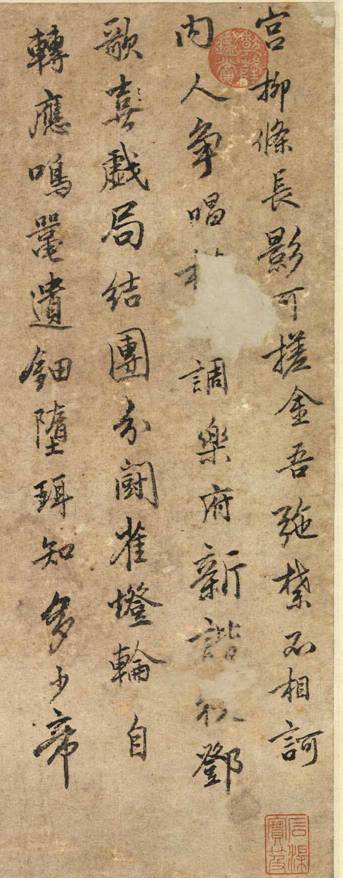 宮柳條長影可搓金吾弛禁不相訶
內人爭唱調樂府新諧鄧
歌喜戲局結團分鬪雀燈輪自
轉應鳴鼉遺鈿墮珥知多少帝